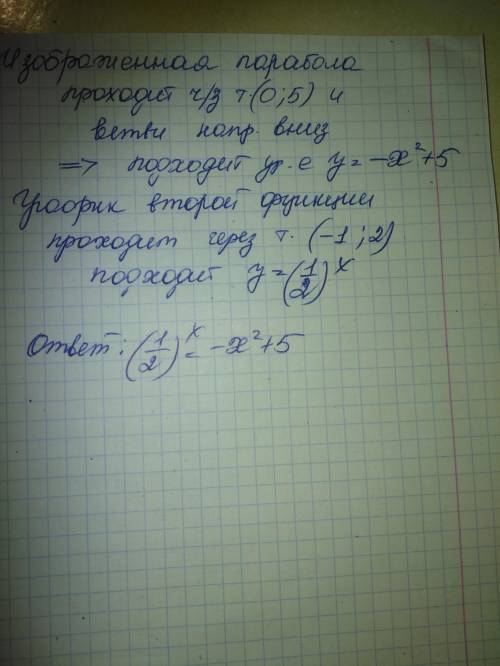 Изображенная парабола
проходит ч/з т (0;5) и
ветви напр. вниз
=> подходит ур-е y = -x²+5
График второй функции
проходит через т. (-1; 2)
подходит y = (1/2)^x
Ответ: (1/2)^x = -x²+5